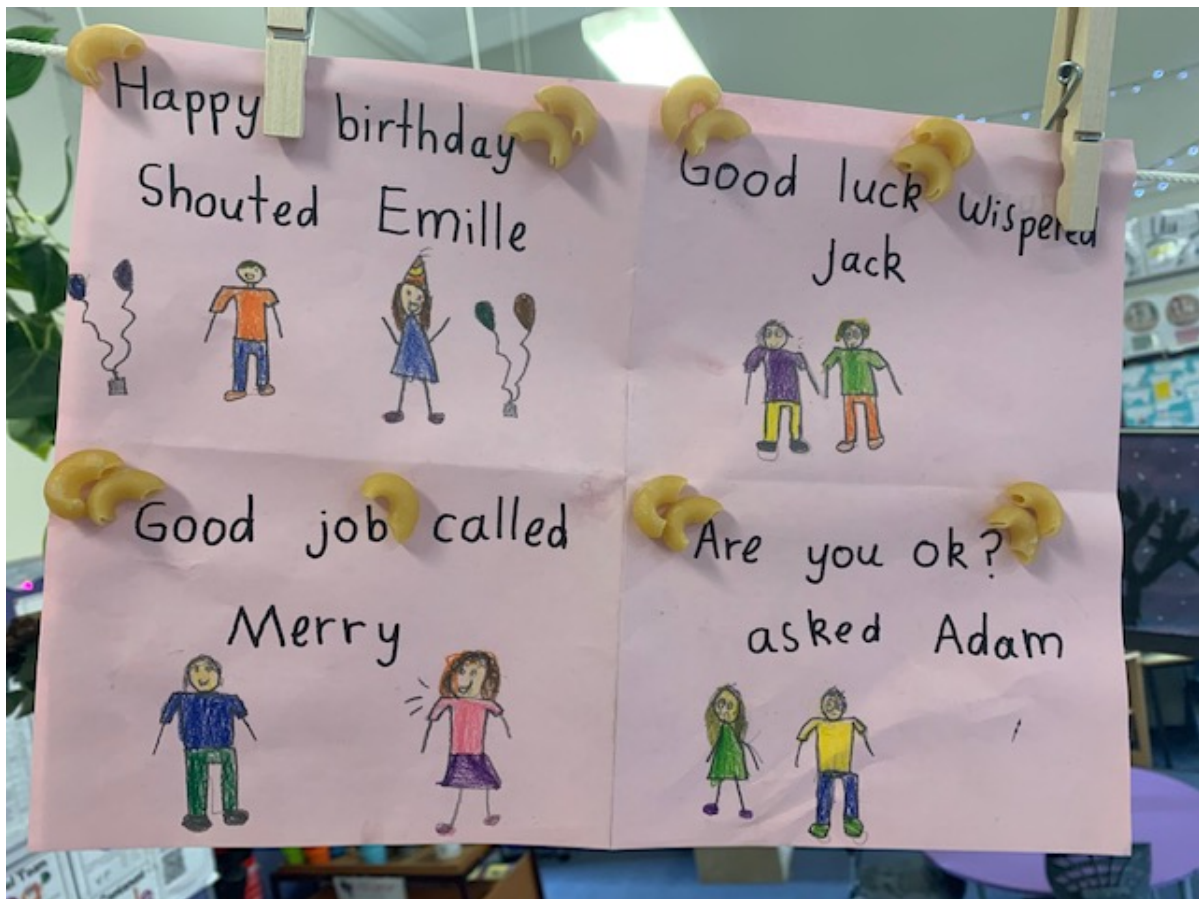 Happy birthday
Shouted Emille
Good luck wispered
Jack
Good job called
Merry
Are you ok?
asked Adam